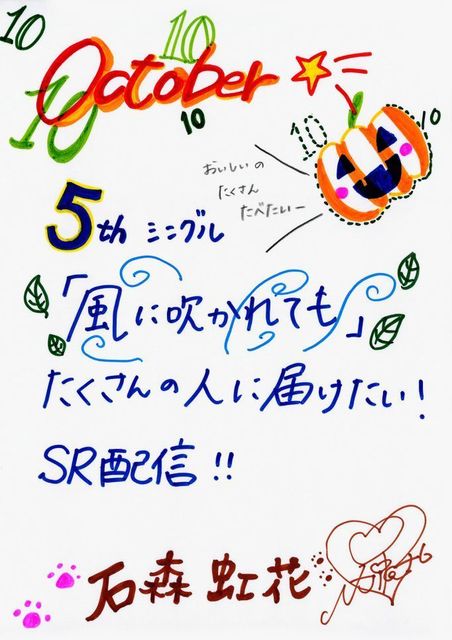 10
10
10
October
10
10
10
おいしいの
たくさん
たべたいー
5th シングル
「風に吹かれても」
たくさんの人に届けたい!
SR配信!!
石森 虹花